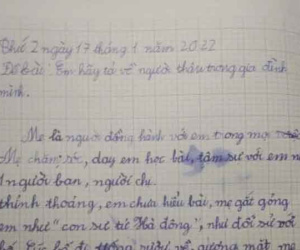 Thứ 2 ngày 17 tháng 1 năm 2022
Đề bài: Em hãy tả về người thân trong gia đình
mình.
Mẹ là người đồng hành với em trong mọi
Mẹ chăm sóc, dạy em học bài, tâm sự với em n
1 người bạn, người chị.
thỉnh thoảng, em chưa hiểu bài, mẹ gắt gỏng
em như "con sư tử Hà đông", như đôi sứ
mẹ